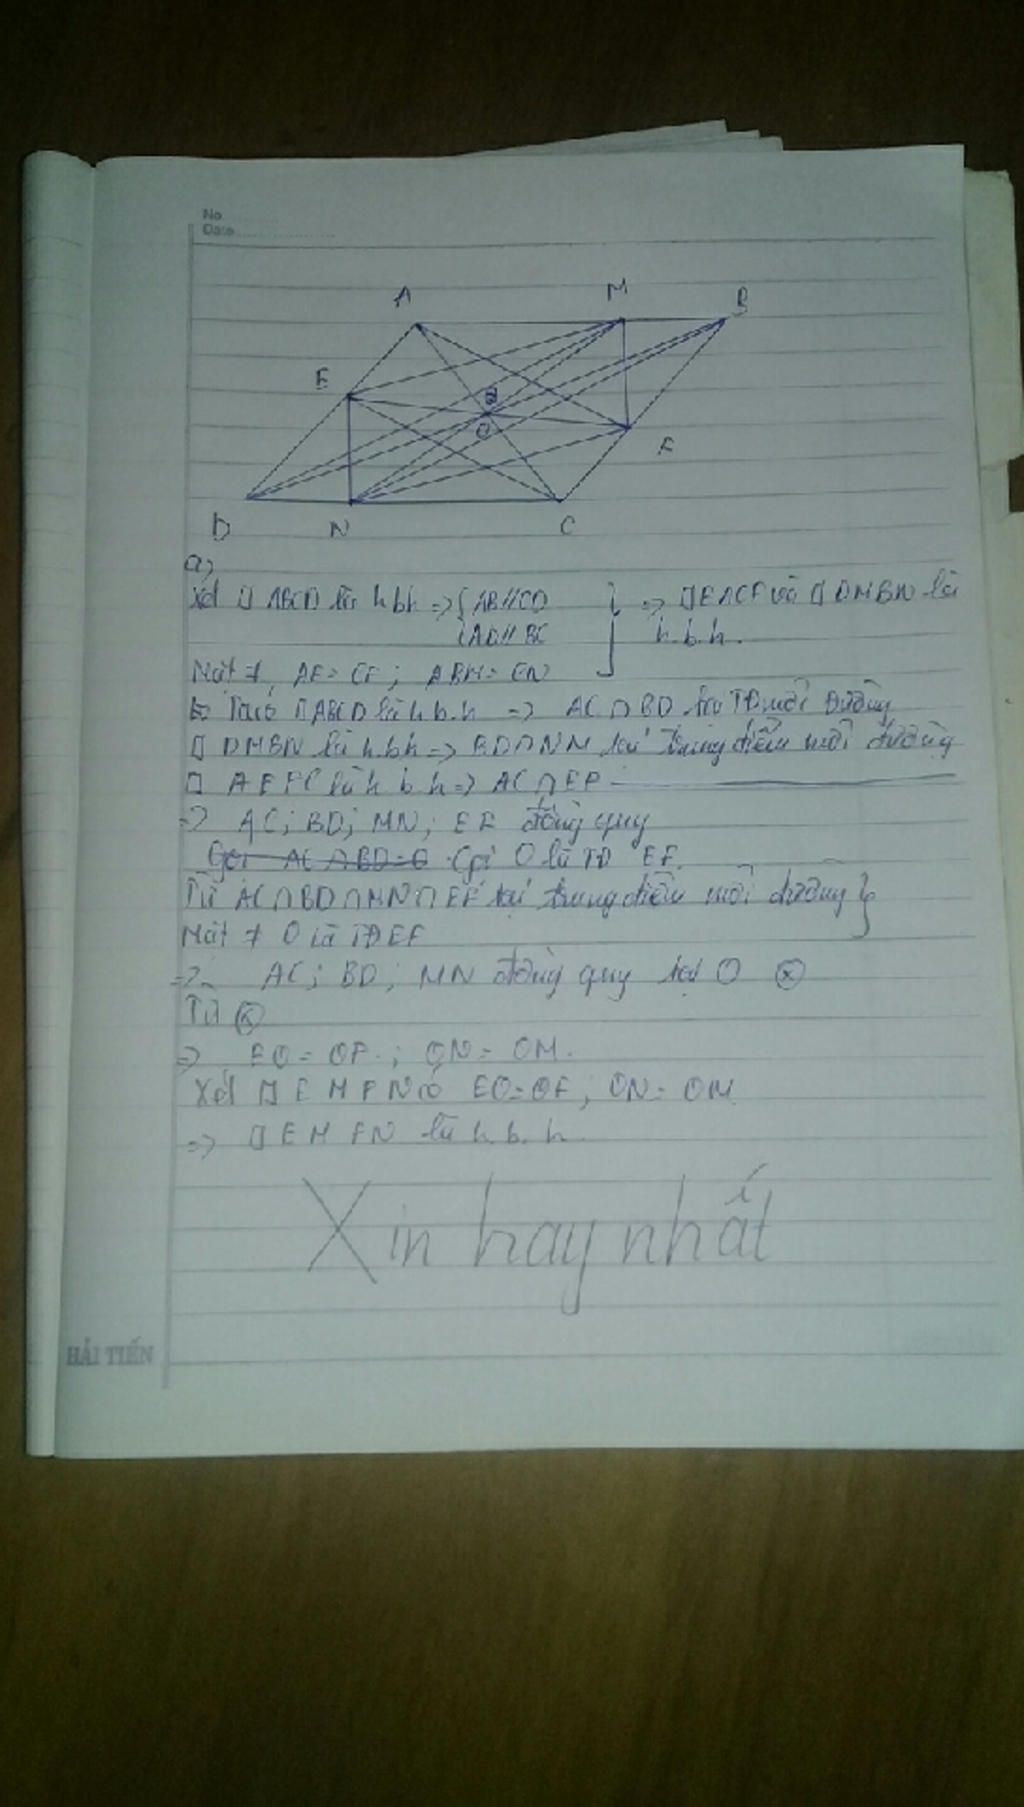 No
Date
A M B
E
O
F
D N C
a)
Xét □ ABCD là hbh => { AB//CD } => □ EACF và □ DMBN là
{ AD // BC h.b.h.
Mặt ≠, AE = CF; = CN
Ta có □ ABCD là h.b.h => AC ∩ BD tại TĐ mỗi đường
□ DMBN là h.bh => BD ∩ NM tại trung điểm mỗi đường
□ AEFC là h b h => AC ∩ EF
=> AC; BD; MN; EF đồng quy
Gọi AC ∩ BD = O Gọi O là TĐ EF.
Từ AC ∩ BD ∩ MN ∩ EF tại trung điểm mỗi đường }
Mặt ≠ O là TĐ EF
=> AC; BD; MN đồng quy tại O ⓧ
Từ ⓧ
=> EO = OF; ON = OM.
Xét □ E M F N có EO = OF; ON = OM
=> □ E M FN là h.b.h.
Xin hay nhất
HẢI TIẾN